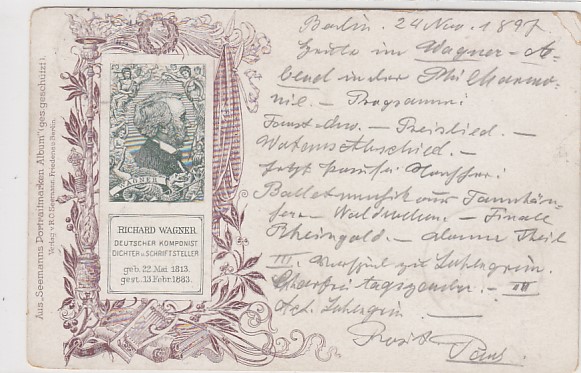 Aus „Seemanns Portraitmarken Album" (ges geschützt).
Verlag v. R.O. Seemann, Friedenau-Berlin.
WAGNER
RICHARD WAGNER
DEUTSCHER KOMPONIST
DICHTER u. SCHRIFTSTELLER
geb. 22. Mai 1813.
gest. 13. Febr. 1883.
Berlin. 24 Nov. 1897
Heute im Wagner-A-
bend in der Philharmo-
nie. - Programm:
Faust-Ouv. - Preislied. -
Wotans Abschied. -
Jetzt
Balletmusik aus Tannhäu-
ser. Waldweben. - Finale
Rheingold. - Dann Theil
III. Vorspiel zu Lohengrin.
Charfreitagszauber. - III
Act. Lohengrin
Prosit
Paul